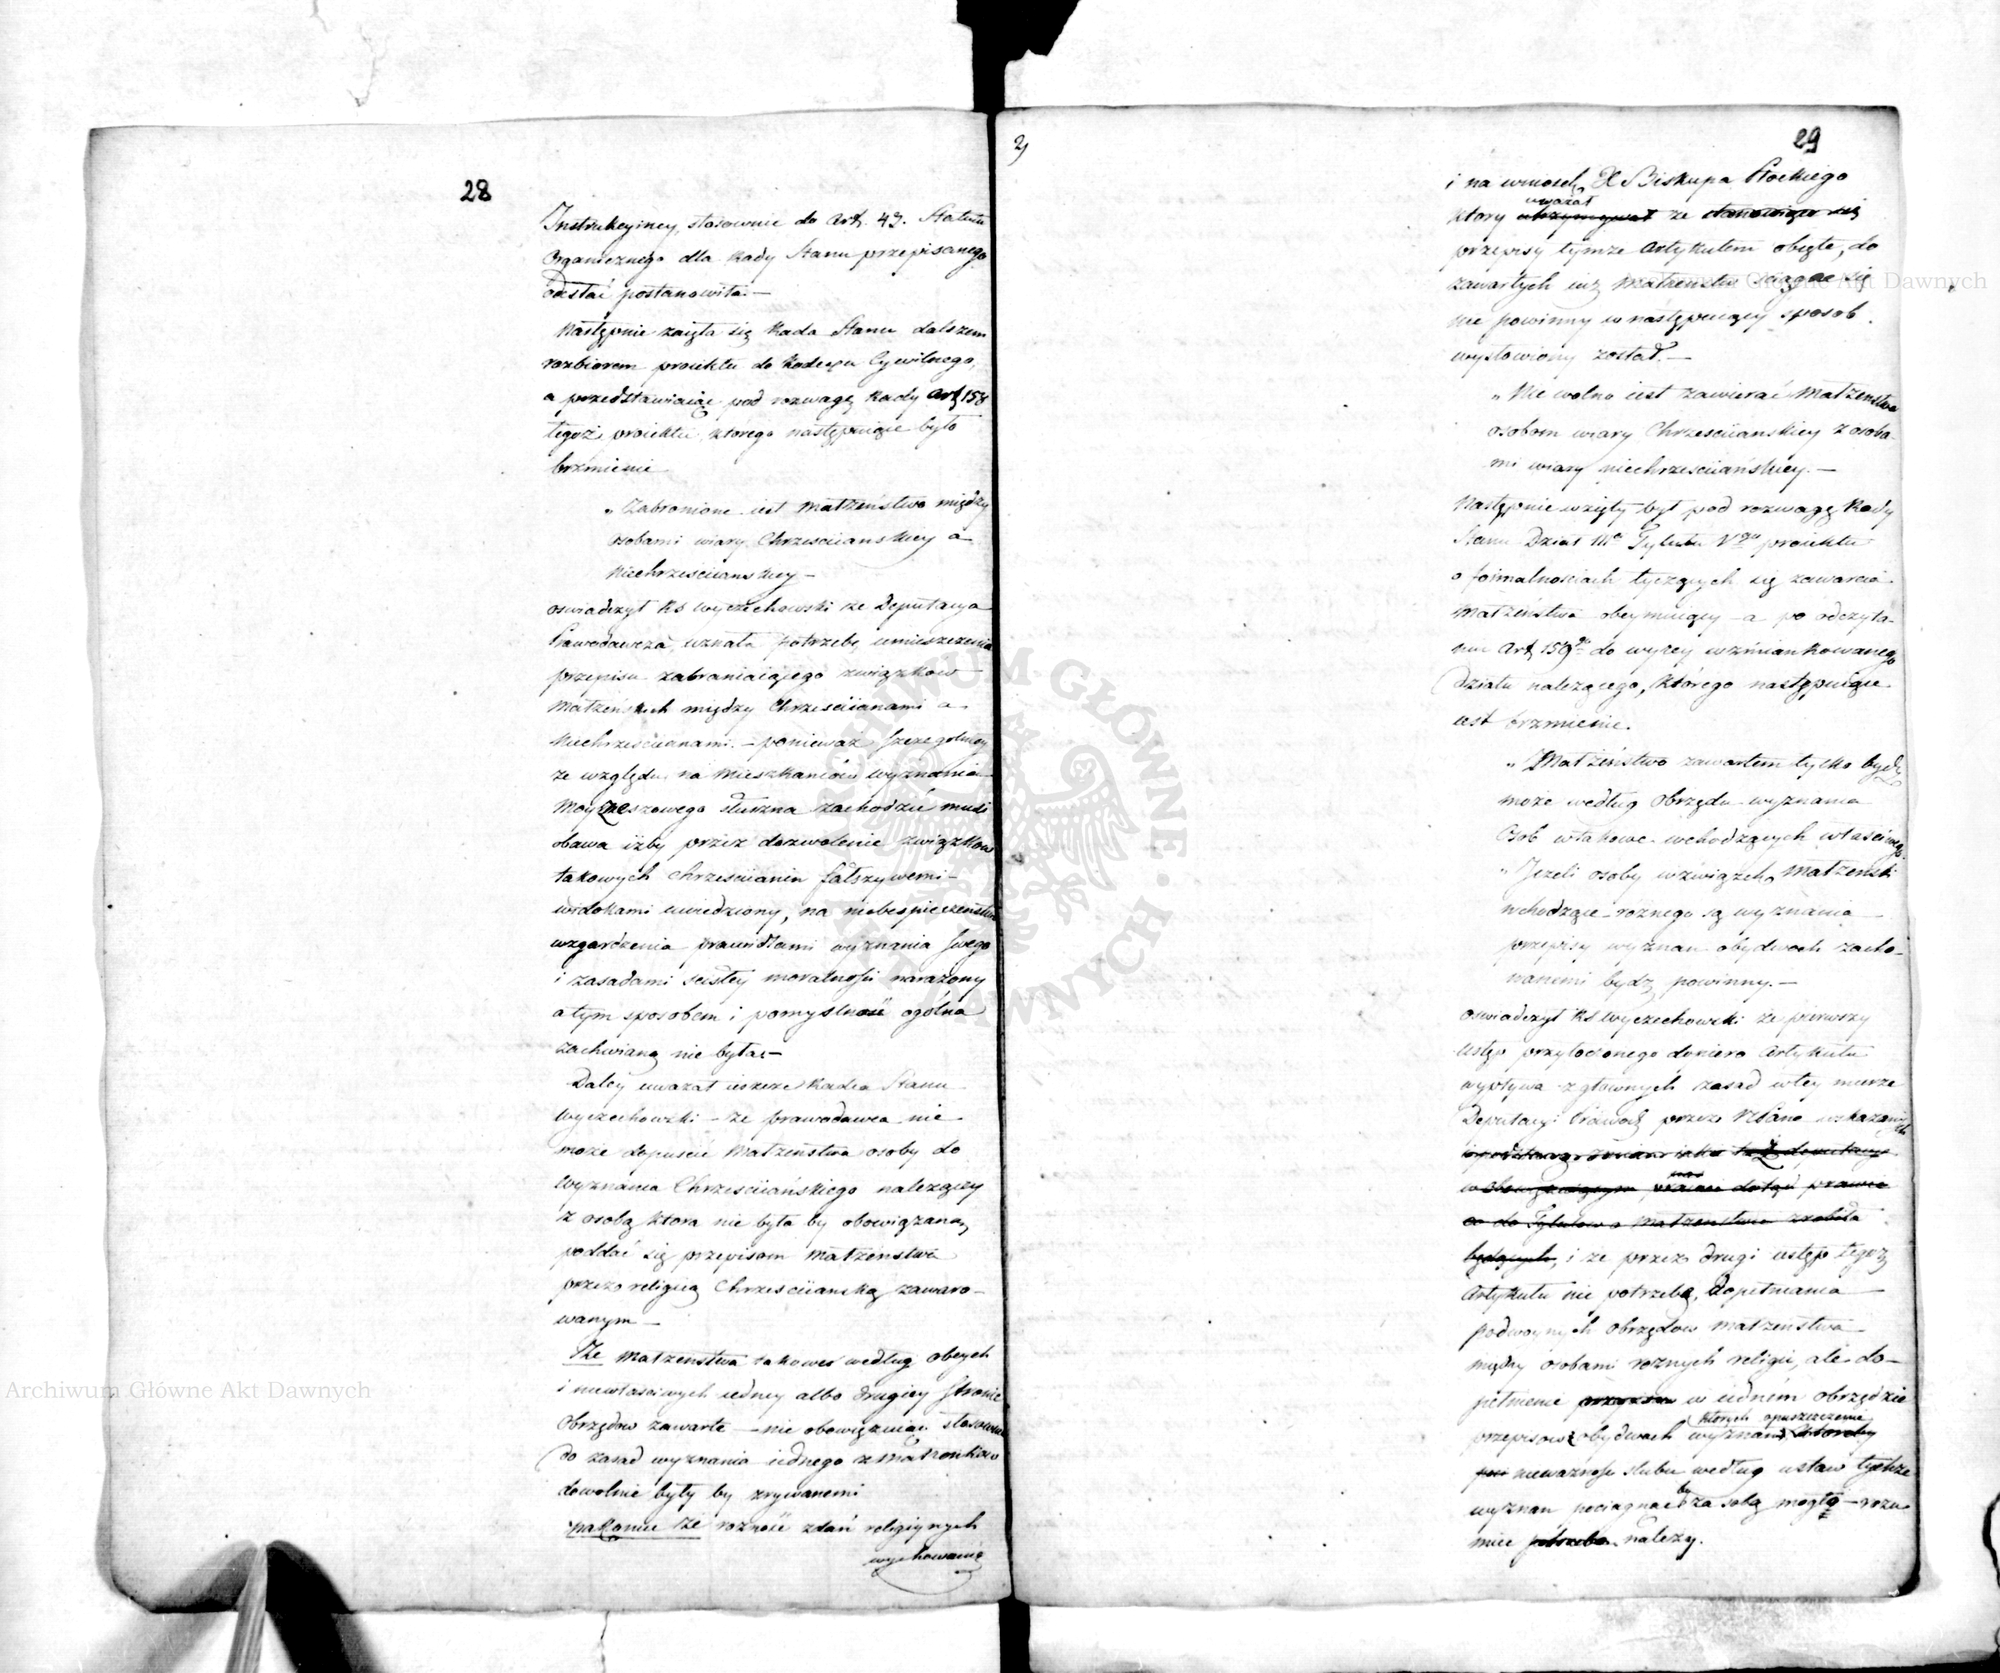 28
Instrukcyiney, stosownie do Art. 49. Statutu
Organicznego dla Rady Stanu przepisanego
odesłać postanowiła.—
Następnie zaięła się Rada Stanu dalszem
rozbiorem proiektu do Kodexu Cywilnego,
a przedstawiaiąc pod rozwagę Rady Art 158
tegoż proiektu, którego następuiące było
brzmienie
„Zabronione iest Małżeństwo między
osobami wiary Chrześciianskiey a
Niechrześciianskiey—
oswiadczył RS Wyczechowski że Deputacya
Prawodawcza, uznała potrzebę umieszczenia
przepisu zabraniaiącego związków
Małżeńskich między Chrześciianami a
Niechrześciianami.— ponieważ szczegolniey
ze względu na Mieszkańców wyznania
Moyżeszowego słuszna zachodzić musi
obawa iżby przez dozwolenie związków
takowych Chrześciianin fałszywemi
widokami uwiedziony, na niebespieczeństwo
wzgardzenia prawidłami wyznania swego
i zasadami scisłey moralności narażony
a tym sposobem i pomyslność ogólna
zachwianą nie była.—
Daley uważał ieszcze Radca Stanu
Wyczechowski— że prawodawca nie
może dopuścić Małżeństwa osoby do
Wyznania Chrześciiańskiego należącey
z osobą która nie była by obowiązaną
poddać się przepisom Małżeństwa
przez religią Chrześciianską zawaro-
wanym—
Że Małżeństwa takowe według obcych
i niewłaściwych iedney albo drugiey stronie
Obrzędów zawarte — nie obowiązuiąc stosownie
do zasad wyznania iednego z Małżonków
dowolnie były by zrywanemi
nakoniec że rożność zdań religiynych
wychowanie
29
i na wniosek X Biskupa Płockiego
uważał
ktory utrzymywał że stanowiąc się
przepisy tymże Artykułem obięte, do
zawartych iuż Małżeństw ciągać się
nie powinny w następuiący sposob
wysłowiony został.—
„Nie wolno iest zawierać Małżeństwa
osobom wiary Chrześciianskiey z osoba-
mi wiary niechrześciiańskiey.—
Następnie wzięty był pod rozwagę Rady
Stanu Dział III Tytułu Vgo proiektu
o formalnościach tyczących się zawarcia
Małżeństwa obeymuiący — a po odczyta-
niu Art 159go do wyżey wzmiankowanego
Działu należącego, którego następuiące
iest brzmienie.
„Małżeństwo zawartem tylko bydź
może według Obrzędu wyznania
Osob w takowe wchodzących właściwego.
„Jeżeli osoby w związek Małżeński
wchodzące rożnego są wyznania
przepisy wyznań obydwoch zacho-
wanemi bydź powinny.—
oswiadczył RS Wyczechowski że pierwszy
ustęp przytoczonego dopiero Artykułu
wypływa z głównych zasad w tey mierze
Deputacyi Prawod przez N Pana wskazanych
co do Tytułow o Małżeństwie zrobiła
będących, i że przez drugi ustęp tegoż
Artykułu nie potrzebę, dopełniania
podwoynych obrzędow małżeństwa
między osobami rożnych religii, ale do-
pełnienie w iednem obrzędzie
których opuszczenie
przepisow obydwoch wyznań,
nieważność slubu według ustaw tychże
wyznań pociągnać by za sobą mogło — rozu-
mieć potrzeba należy.